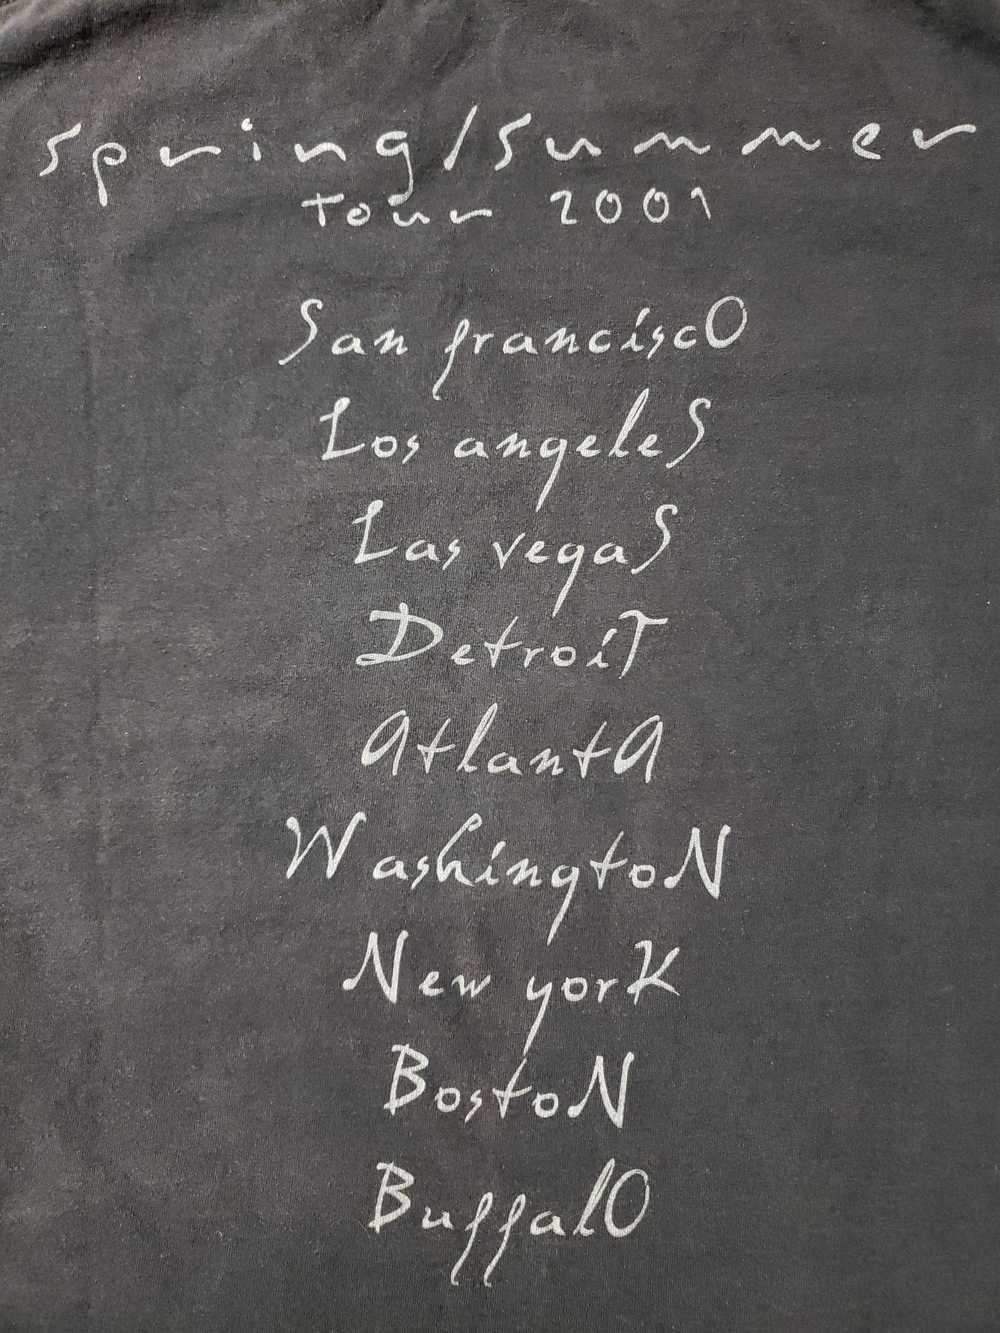 spring/summer
tour 2001
San franciscO
Los angeleS
Las vegaS
DetroiT
AtlantA
WashingtoN
New yorK
BostoN
BuffalO